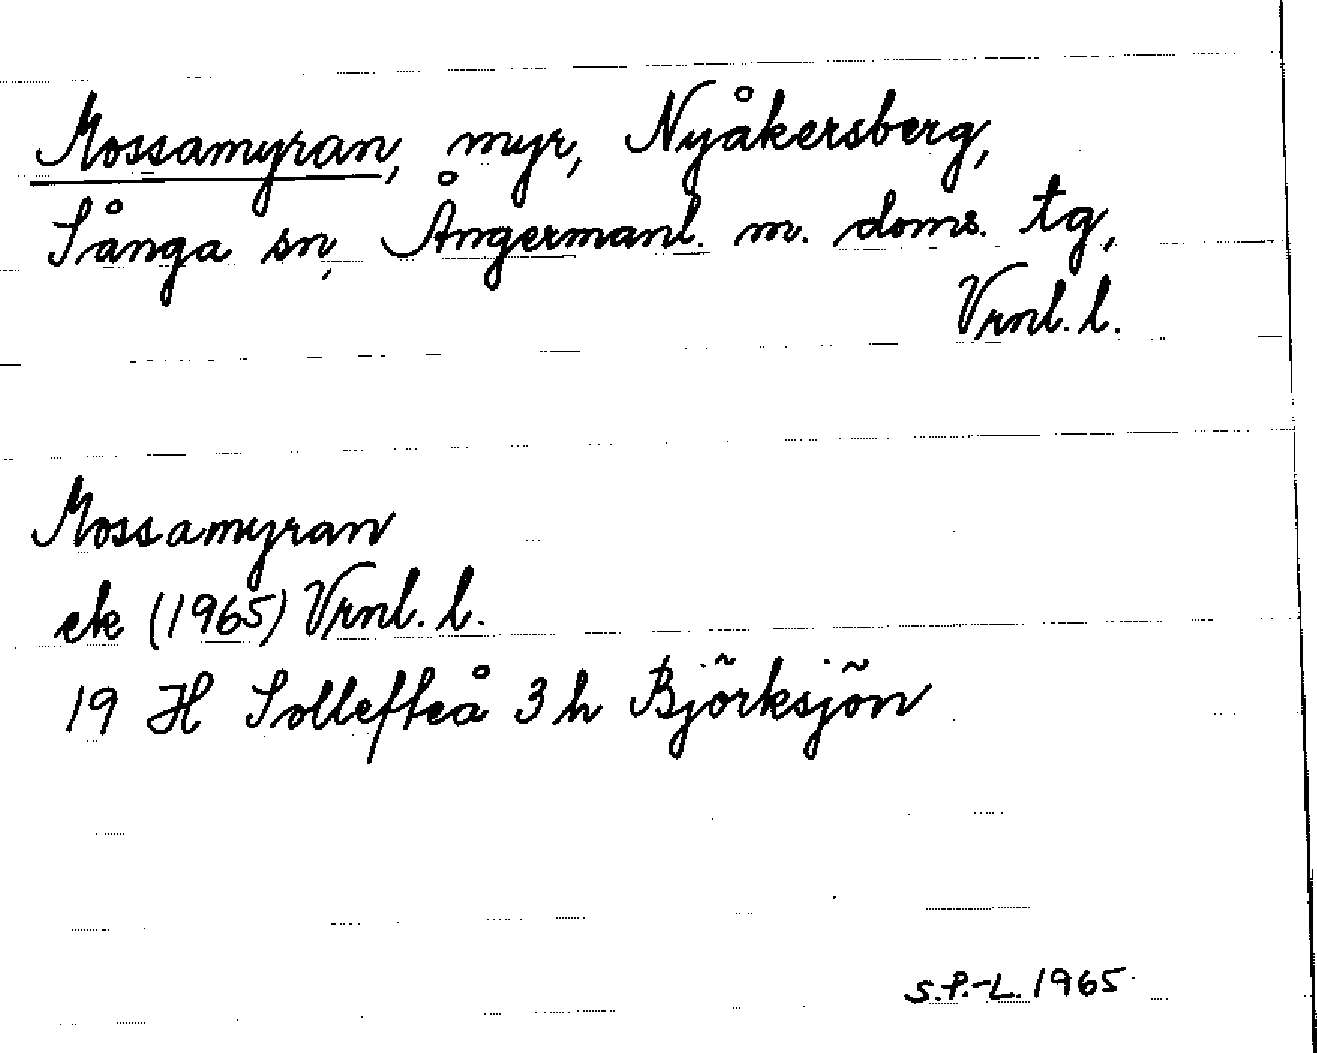 Mossamyran, myr, Nyåkersberg,
Sånga sn, Ångermanl. m. doms. tg,
Vrnl. l.
Mossamyran
ek (1965) Vrnl. l.
19 H Sollefteå 3 h Björksjön
S.P.-L. 1965